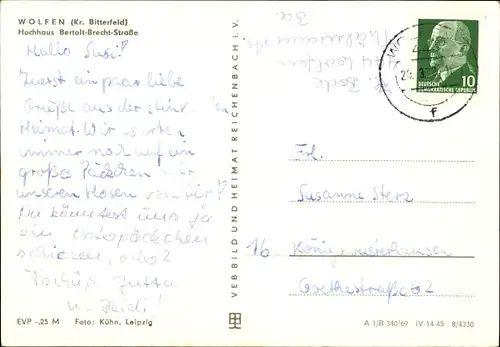 WOLFEN (Kr. Bitterfeld)
Hochhaus Bertolt-Brecht-Straße
Hallo Susi!
Zuerst ein paar liebe
Grüße aus der
Heimat. Wir warten
immer noch auf ein
großes Päckchen
unseren Hosen von Dir!
Du könntest uns ja
ein Osterpäckchen
schicken, oder?
Tschüß Jutta
u. Heidi!
EVP -,25 M Foto: Kühn, Leipzig
VEB BILD UND HEIMAT REICHENBACH I. V.
44 Wolfen
3a
10
DEUTSCHE
DEMOKRATISCHE REPUBLIK
f
Frl.
Susanne Sterz
16
Goethestraße 62
A 1/B 340/69 IV-14-45 8/4330